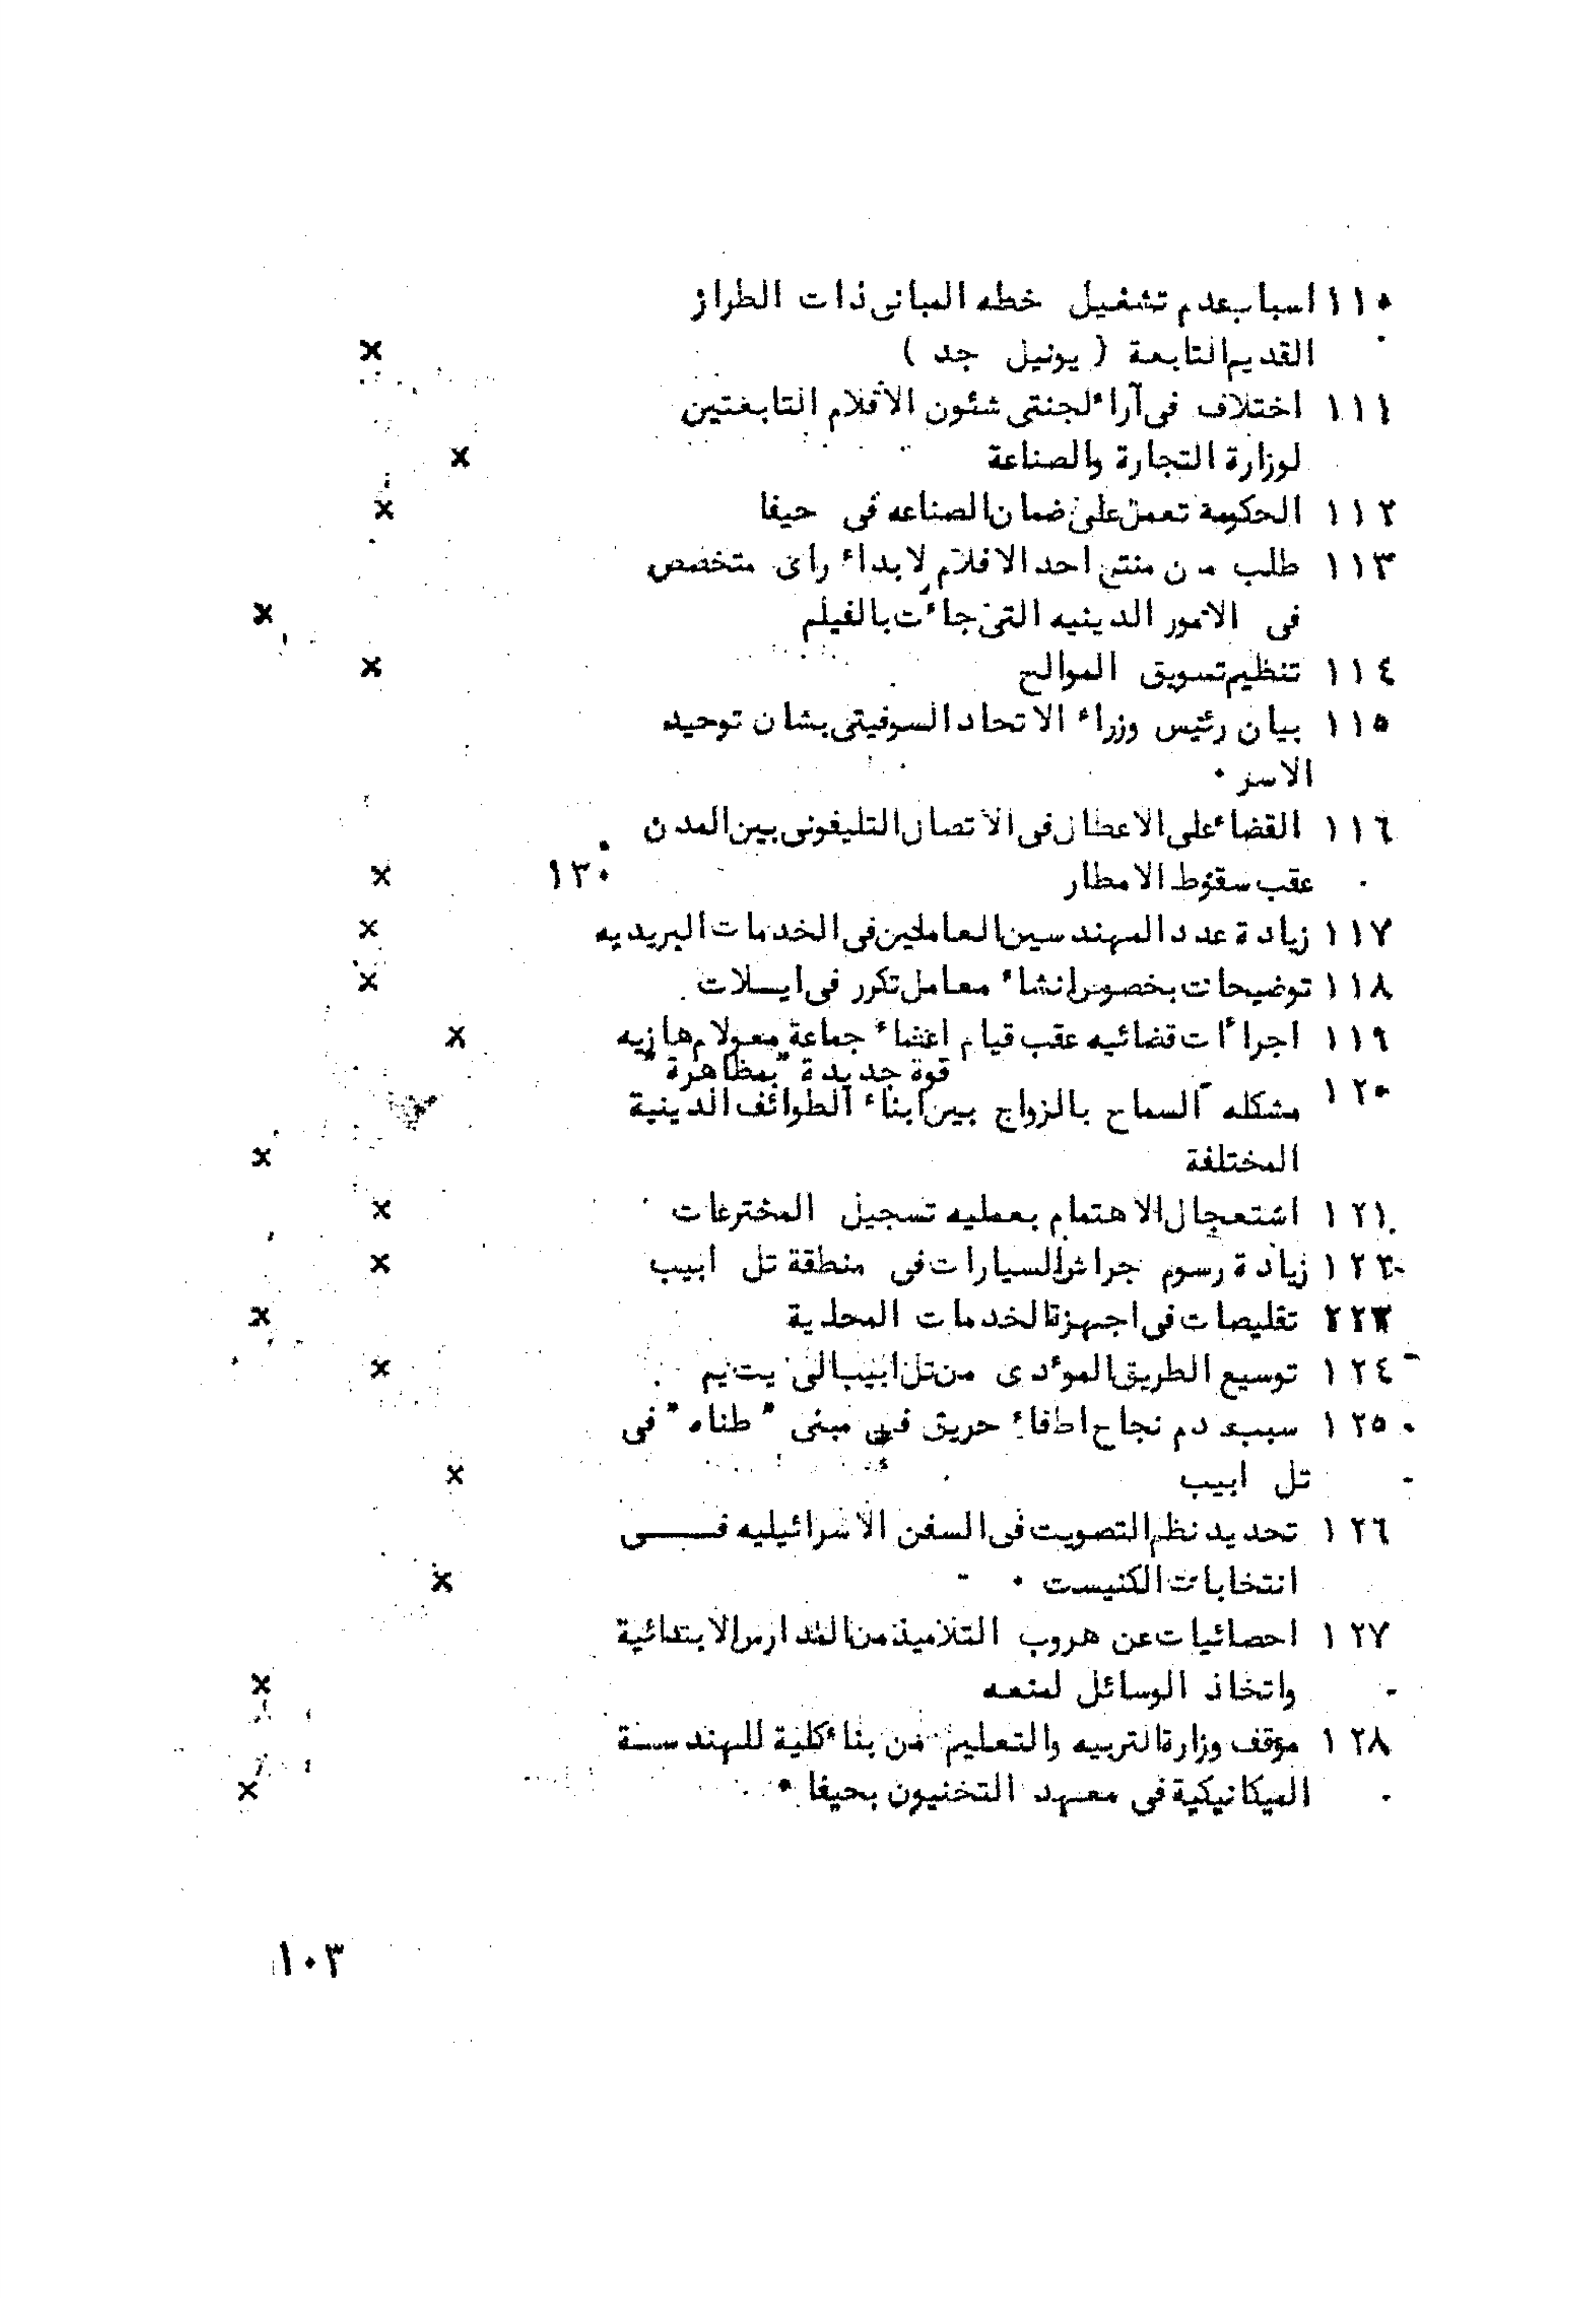 ١١٠ اسباب عدم تشغيل خطه المبانى ذات الطراز
القديم التابعة ( يونيل جد ) x
١١١ اختلاف فى آراء لجنتى شئون الأفلام التابعتين
لوزارة التجارة والصناعة x
١١٢ الحكومة تعمل على ضمان الصناعه فى حيفا x
١١٣ طلب من منتج احد الافلام لابداء راى متخصص
فى الامور الدينيه التى جاءت بالفيلم x
١١٤ تنظيم تسويق الموالح x
١١٥ بيان رئيس وزراء الاتحاد السوفيتى بشان توحيد
الاسر ٠
١١٦ القضاء على الاعطال فى الاتصال التليفونى بين المدن
عقب سقوط الامطار ١٣٠ x
١١٧ زيادة عدد المهندسين العاملين فى الخدمات البريديه x
١١٨ توضيحات بخصوص انشاء معامل تكرر فى ايسلات x
١١٩ اجراءات قضائيه عقب قيام اعضاء جماعة معولام هازيه x
قوة جديدة "بمظاهرة"
١٢٠ مشكله السماح بالزواج بين ابناء الطوائف الدينية
المختلفة x
١٢١ استعجال الاهتمام بعمليه تسجيل المخترعات x
١٢٢ زيادة رسوم جراش السيارات فى منطقة تل ابيب x
٢٢٣ تقليصات فى اجهزة الخدمات المحلية x
١٢٤ توسيع الطريق المؤدى من تل ابيب الى يت يم x
١٢٥ سبب عدم نجاح اطفاء حريق فى مبنى " طناه " فى
تل ابيب x
١٢٦ تحديد نظم التصويت فى السفن الاسرائيليه فــــى
انتخابات الكنيست ٠ x
١٢٧ احصائيات عن هروب التلاميذ من المدارس الابتدائية
واتخاذ الوسائل لمنعه x
١٢٨ موقف وزارة التربيه والتعليم من بناء كلية للهندســة
الميكانيكية فى معهد التخنيون بحيفا ٠ x
١٠٣